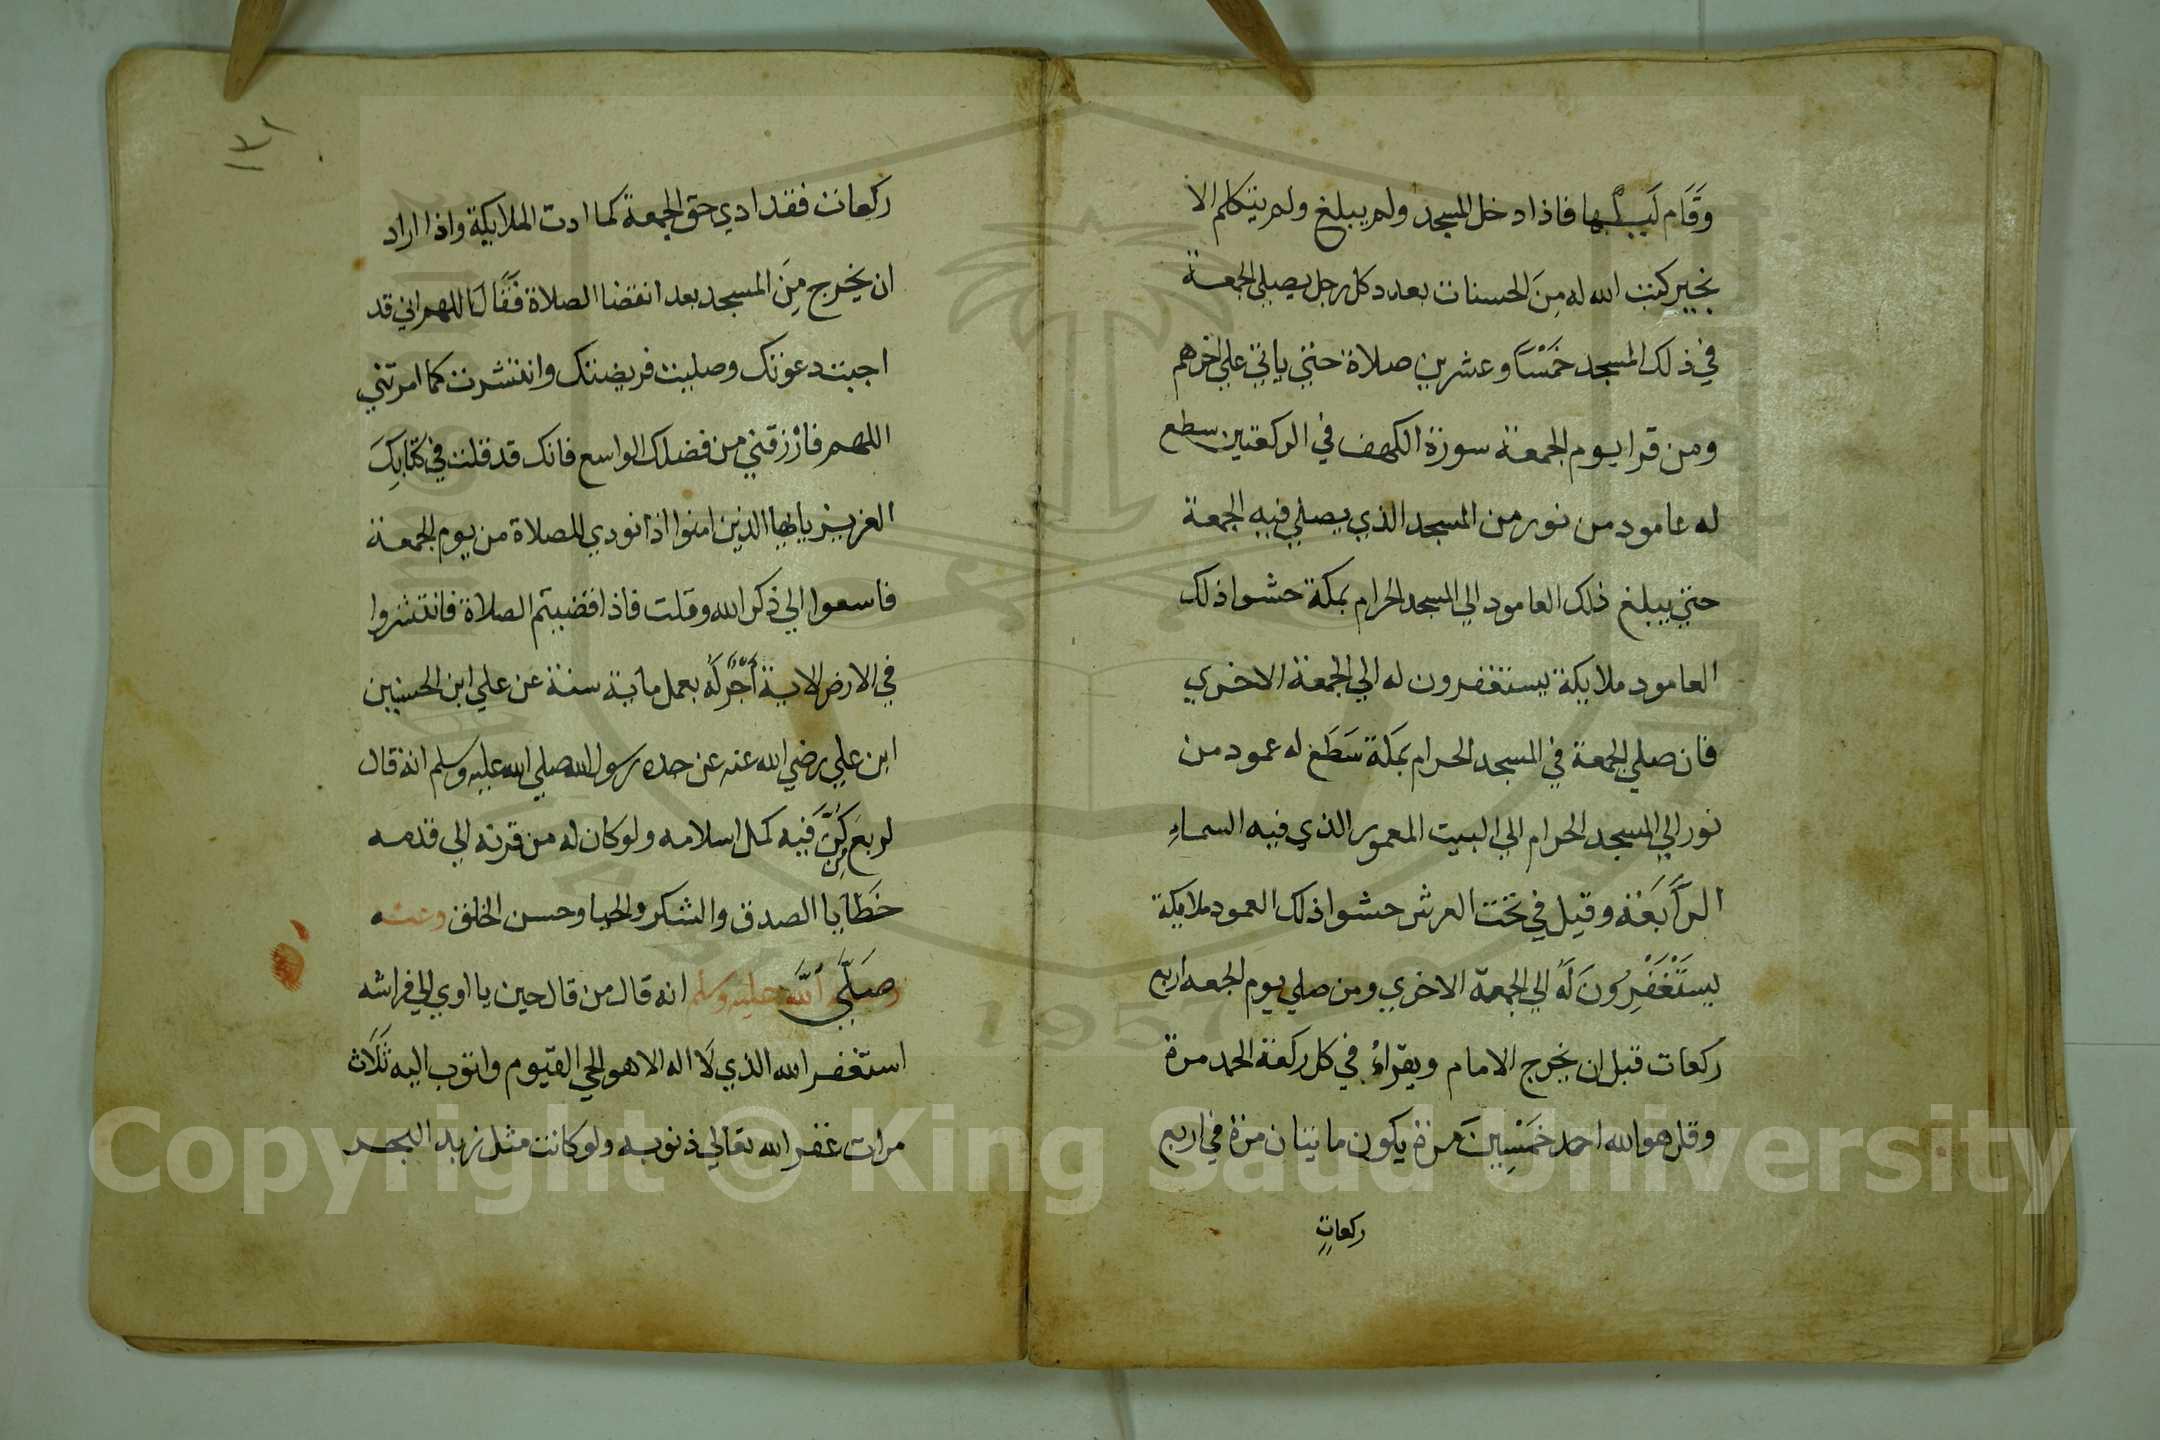 وَقَام لَيلها فاذا دخل المسجد ولم يبلغ ولم يتكلم الا
بخير كتب الله له مِنَ الحسنات بعدد كل رجل يصلي الجمعة
في ذلك المسجد خَمْسًا وعشرين صلاة حتي ياتي علي اخرهم
ومن قرا يوم الجمعة سورة الكهف في الركعتين سطع
له عامود من نور من المسجد الذي يصلي فيه الجمعة
حتي يبلغ ذلك العامود الي المسجد الحرام بمكة حشوا ذلك
العامود ملايكة يستغفرون له الي الجمعة الاخري
فان صلي الجمعة في المسجد الحرام بمكة سَطَع له عمود من
نور الي المسجد الحرام الي البيت المعمور الذي فيه السماءِ
الرَّابَعَة وقيل في تحت العرش حشوا ذلك العمود ملايكة
يسَتَغْفِرُونَ لَهُ الي الجمعة الاخري ومن صلي يوم الجمعه اربع
ركعات قبل ان يخرج الامام ويقراءُ في كل ركعة الحمد مرة
وقل هو الله احد خَمْسِينَ مرة يكون مايتان مرة في اربع
ركعات
١٣١
ركعات فقد ادي حق الجمعة كما ادت الملايكة واذا اراد
ان يخرج مِنَ المسجد بعد انقضا الصلاة فَقَالَ اللهم اني قد
اجبت دعوتك وصليت فريضتك وانتشرت كما امرتني
اللهم فارْزقني من فضلك الواسع فانك قد قلت في كتابِكَ
العزيز ياايها الذين امنوا اذا نودي للصلاة من يوم الجمعة
فاسعوا الي ذكر الله وقلت فاذا قضيتم الصلاة فانتشروا
في الارض الاية أُجْرَ لَهُ بعمل ماية سنة عن علي ابن الحسين
ابن علي رضي الله عنه عن جده رسول الله صلي الله عليه وسلم انه قال
اربع من كُنَّ فَيه كمل اسلامه ولو كان له من قرنه الي قدمه
خَطَايا الصدق والشكر والحيا وحسن الخلق وعنه
صَلَّي اللَّه عليه وسلم انه قال من قال حين ياوي الي فراشه
استغفر الله الذي لَا اله الا هو الحي القيوم واتوب اليه ثَلَاث
مرات غفر الله تعالي ذنوبه ولو كانت مثل زبد البحر
Copyright © King Saud University
1957